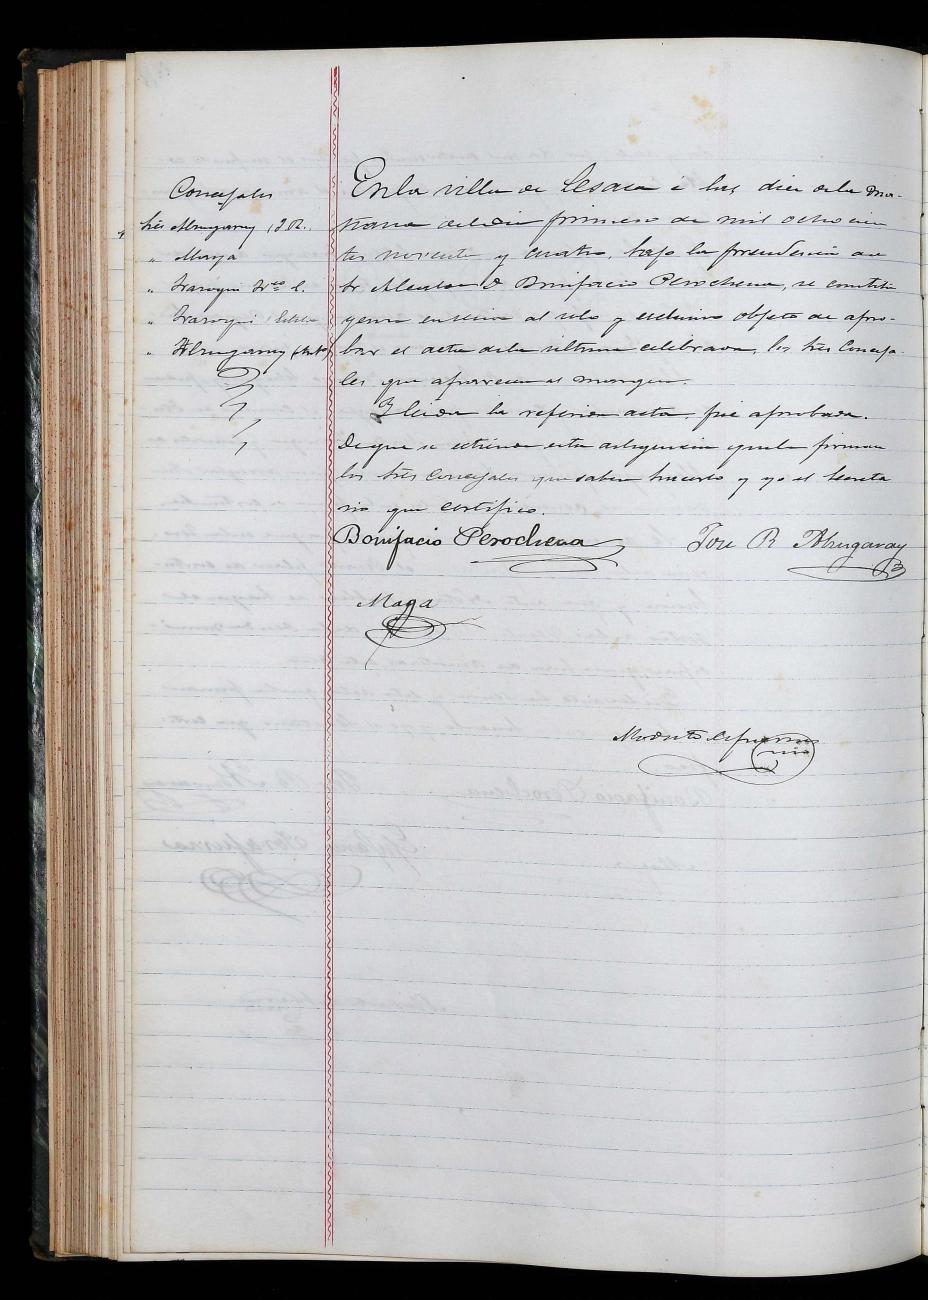 Concejales
Sres Almugaray J. R.
" Maya
" Irazoqui Fr.co C.
" Irazoqui
" Almugaray
En la villa de Lesaca á las diez de la ma-
ñana del dia primero de mil ochocien
tos noventa y cuatro, bajo la presidencia del
Sr Alcalde D. Bonifacio Perochena, se constitu
yeron en sesion al solo y esclusivo objeto de apro-
bar el acta de la ultima celebrada, los Sres Conceja-
les que aparecen al margen.
Y leida la referida acta, fué aprobada.
De que se estiende esta diligencia que la firman
los Sres Concejales que saben hacerlo y yo el Secreta
rio que certifico.
Bonifacio Perochena José R. Almugaray
Maya
Modesto